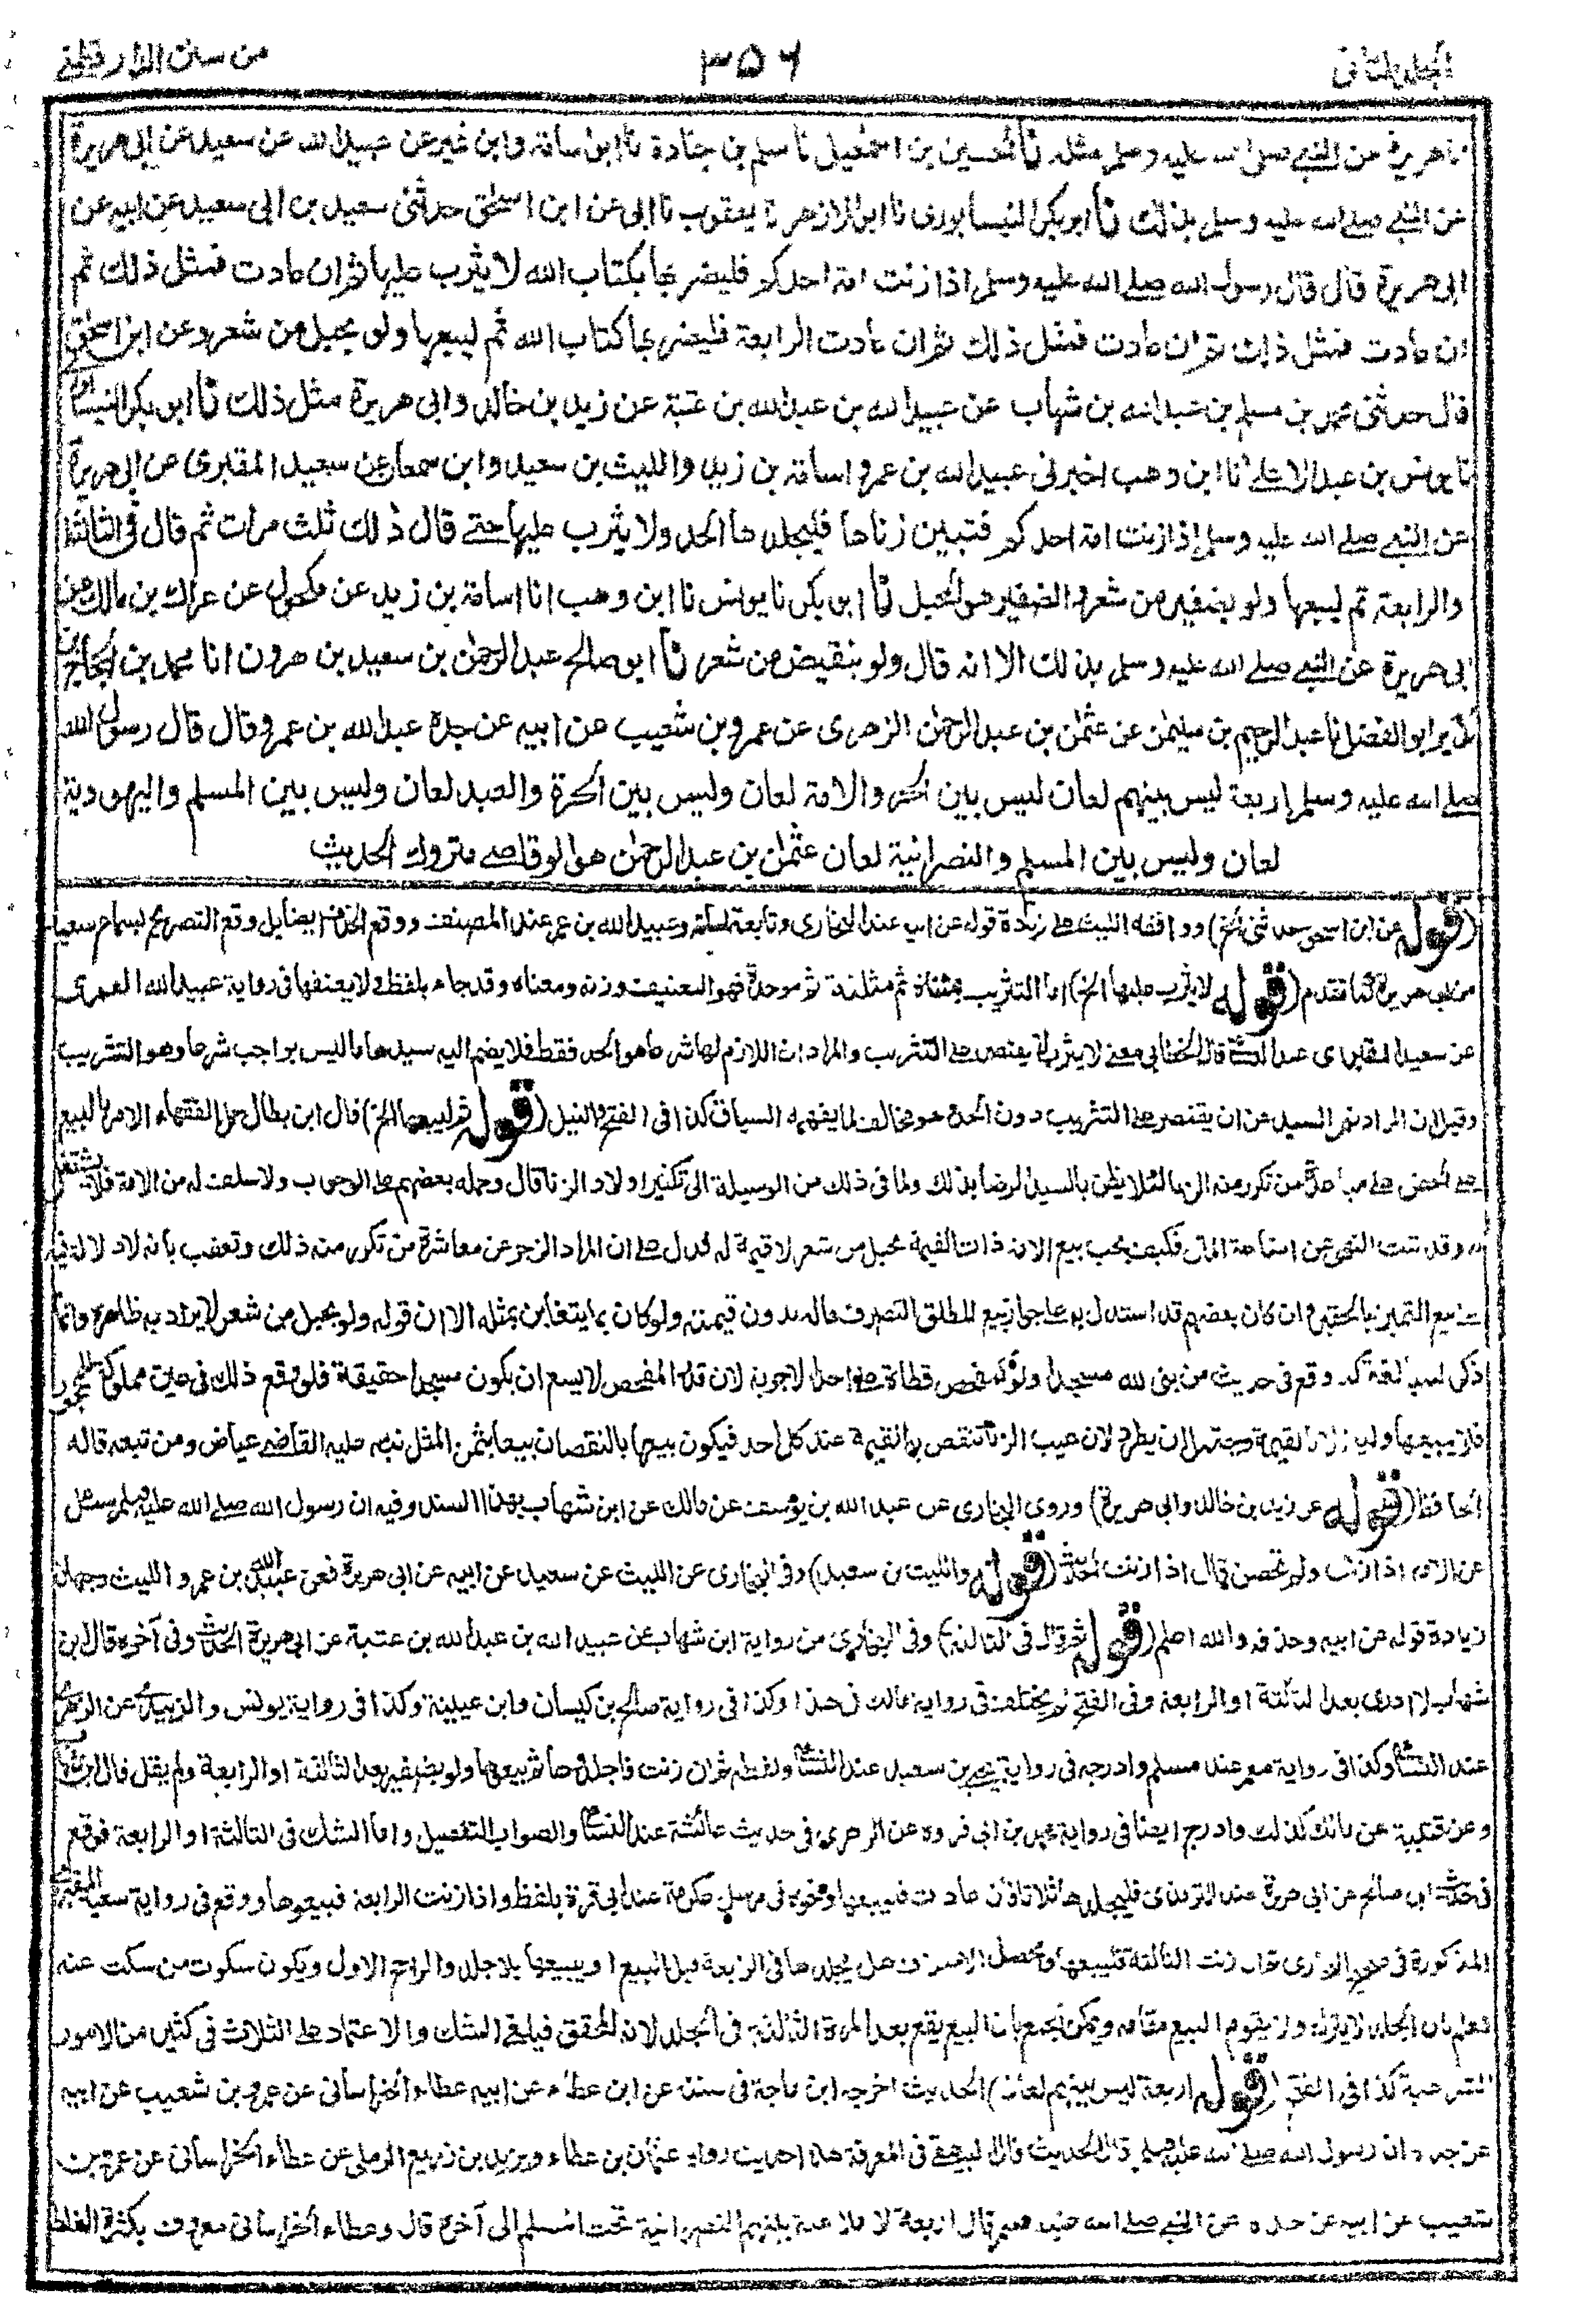 المجلد الثانى ٣٥٦ من سنن الدارقطنے
عن النبے صلے الله عليه وسلم مثله نا الحسين بن اسمٰعيل نا سلم بن جنادة نا ابو اسامة وابن نمير عن عبيد الله عن سعيد عن ابى هريرة
عن النبے صلے الله عليه وسلم بذلك نا ابو بكر النيسابورى نا ابو الازهر نا يعقوب نا ابى عن ابن اسحٰق حدثنى سعيد بن ابى سعيد عن ابيه عن
ابى هريرة قال قال رسول الله صلے الله عليه وسلم اذا زنت امة احدكم فليضربها بكتاب الله لا يثرب عليها ثم ان عادت فمثل ذلك ثم
ان عادت فمثل ذلك ثم ان عادت فمثل ذلك ثم ان عادت الرابعة فليضربها كتاب الله ثم ليبعها ولو بحبل من شعر وعن ابن اسحٰق
قال حدثنى محمد بن مسلم بن عبد الله بن شهاب عن عبيد الله بن عبد الله بن عتبة عن زيد بن خالد وابى هريرة مثل ذلك نا ابو بكر النيسابورى
نا يونس بن عبد الاعلے نا ابن وهب اخبرنى عبيد الله بن عمر و اسامة بن زيد والليث بن سعيد وابن سمعان عن سعيد المقبرى عن ابى هريرة
عن النبے صلے الله عليه وسلم اذا زنت امة احدكم فتبين زناها فليجلدها الحد ولا يثرب عليها حتے قال ذلك ثلث مرات ثم قال فى الثالثة
والرابعة ثم ليبعها ولو بضفير من شعر والضفير هو الحبل نا ابو بكر نا يونس نا ابن وهب انا اسامة بن زيد عن مكحول عن عراك بن مالك عن
ابى هريرة عن النبے صلے الله عليه وسلم بذلك الا انه قال ولو بنقيض من شعر نا ابو صالح عبد الرحمٰن بن سعيد بن هرون انا محمد بن الحجاج بن
نذير ابو الفضل نا عبد الرحيم بن سليمٰن عن عثمٰن بن عبد الرحمٰن الزهرى عن عمرو بن شعيب عن ابيه عن جده عبد الله بن عمرو قال قال رسول الله
صلے الله عليه وسلم اربعة ليس بينهم لعان ليس بين الحر والامة لعان وليس بين الحرة والعبد لعان وليس بين المسلم واليهودية
لعان وليس بين المسلم والنصرانية لعان عثمٰن بن عبد الرحمٰن هو الوقاصے متروك الحديث
(قوله عن ابن اسحق حدثنى الخ) ووافقه الليث علے زيادة قوله عن ابيه عند البخارى وتابعه اسامة وعبيد الله بن عمر عند المصنف ووقع الحذف ايضا بل وقع التصريح بسماع سعيد
من ابى هريرة كما تقدم (قوله لا يثرب عليها الخ) اما التثريب بمثناة ثم مثلثة ثم موحدة فهو التعنيف وزنه ومعناه وقد جاء بلفظ ولا يعنفها فى رواية عبيد الله العمرى
عن سعيد المقبرى عند النسائى قال الخطابى معنے لا يثرب لا يقتصر علے التثريب والمراد ان اللازم لها شرعا هو الحد فقط فلا يضم اليه سيدها ما ليس بواجب شرعا وهو التثريب
وقيل ان المراد نهى السيد عن ان يقتصر علے التثريب دون الحد هو مخالف لما يفهمه السياق كذا فى الفتح والنيل (قوله ثم ليبعها الخ) قال ابن بطال حمل الفقهاء الامر بالبيع
علے الحض علے مباعدة من تكرر منه الزنا لئلا يظن بالسيد الرضا بذلك ولما فى ذلك من الوسيلة الى تكثير اولاد الزنا قال وحمله بعضهم علے الوجوب ولا سلف له من الامة فلا يشتغل
به وقد ثبت النهى عن اضاعة المال فكيف يجب بيع الامة ذات القيمة بحبل من شعر لا قيمة له فدل علے ان المراد الزجر عن معاشرة من تكرر منه ذلك وتعقب بانه لا دلالة فيه
علے بيع الثمين بالحقير وان كان بعضهم قد استدل به علے جواز بيع المطلق التصرف ماله بدون قيمته ولو كان بما يتغابن بمثله الا ان قوله ولو بحبل من شعر لا يراد به ظاهره وانما
ذكر للمبالغة كما وقع فى حديث من بنى لله مسجدا ولو كمفحص قطاة علے احد الاجوبة لان قدر المفحص لا يسع ان يكون مسجدا حقيقة فلو وقع ذلك فى عين مملوكة المحجور
فلا يبيعها وليه الا بالقيمة ويحتمل ان يطرد لان عيب الزنا تنقص به القيمة عند كل احد فيكون بيعها بالنقصان بيعا بثمن المثل نبه عليه القاضے عياض ومن تبعه قاله
الحافظ (قوله عن زيد بن خالد وابى هريرة) وروى البخارى عن عبد الله بن يوسف عن مالك عن ابن شهاب بهذا السند وفيه ان رسول الله صلے الله عليه وسلم سئل
عن الامة اذا زنت ولم تحصن قال اذا زنت الحديث (قوله والليث بن سعيد) وفى البخارى عن الليث عن سعيد عن ابيه عن ابى هريرة فعن عبيد الله بن عمر و الليث وجهان
زيادة قوله عن ابيه وحذفه والله اعلم (قوله ثم قال فى الثالثة) وفى البخارى من رواية ابن شهاب عن عبيد الله بن عبد الله بن عتبة عن ابى هريرة الحديث وفى آخره قال ابن
شهاب لا ادرى بعد الثالثة او الرابعة وفى الفتح لم يختلف فى رواية مالك فى هذا وكذا فى رواية صالح بن كيسان وابن عيينة وكذا فى رواية يونس والزبيدى عن الزهرى
عند النسائى وكذا فى رواية معمر عند مسلم وادرجه فى رواية يحيے بن سعيد عند النسائى ولفظه ثم ان زنت فاجلدوها ثم بيعوها ولو بضفير بعد الثالثة او الرابعة ولم يقل قال ابن شهاب
وعن قتيبة عن مالك كذلك وادرج ايضا فى رواية محمد بن ابى فروه عن الزهرى فى حديث عائشة عند النسائى والصواب التفصيل واما الشك فى الثالثة او الرابعة فوقع
فى حديث ابى صالح عن ابى هريرة عند الترمذى فليجلدها ثلاثا فان عادت فليبعها ونحوه فى مرسل عكرمة عند ابى قرة بلفظ واذا زنت الرابعة فبيعوها ووقع فى رواية سعيد المقبرى
المذكورة فى صحيح البخارى ثم ان زنت الثالثة فليبعها ومحصل الاختلاف هل يجلدها فى الرابعة قبل البيع او يبيعها بلا جلد والراجح الاول ويكون سكوت من سكت عنه
للعلم بان الجلد لا يترك ولا يقوم البيع مقامه ويمكن الجمع بان البيع يقع بعد المرة الثالثة فى الجلد لانه المحقق فيلغے الشك والاعتماد علے الثلاث فى كثير من الامور
الشرعية كذا فى الفتح (قوله اربعة ليس بينهم لعان) الحديث اخرجه ابن ماجة فى سننه عن ابن عطاء عن ابيه عطاء الخراسانى عن عمرو بن شعيب عن ابيه
عن جده ان رسول الله صلے الله عليه وسلم قال الحديث قال البيهقے فى المعرفة هذا احديث رواه عثمان بن عطاء ويزيد بن زريع الرملى عن عطاء الخراسانى عن عمرو بن
شعيب عن ابيه عن جده عن النبے صلے الله عليه وسلم قال اربعة لا ملاعنة بينهم النصرانية تحت المسلم الى آخره قال وعطاء الخراسانى معروف بكثرة الغلط